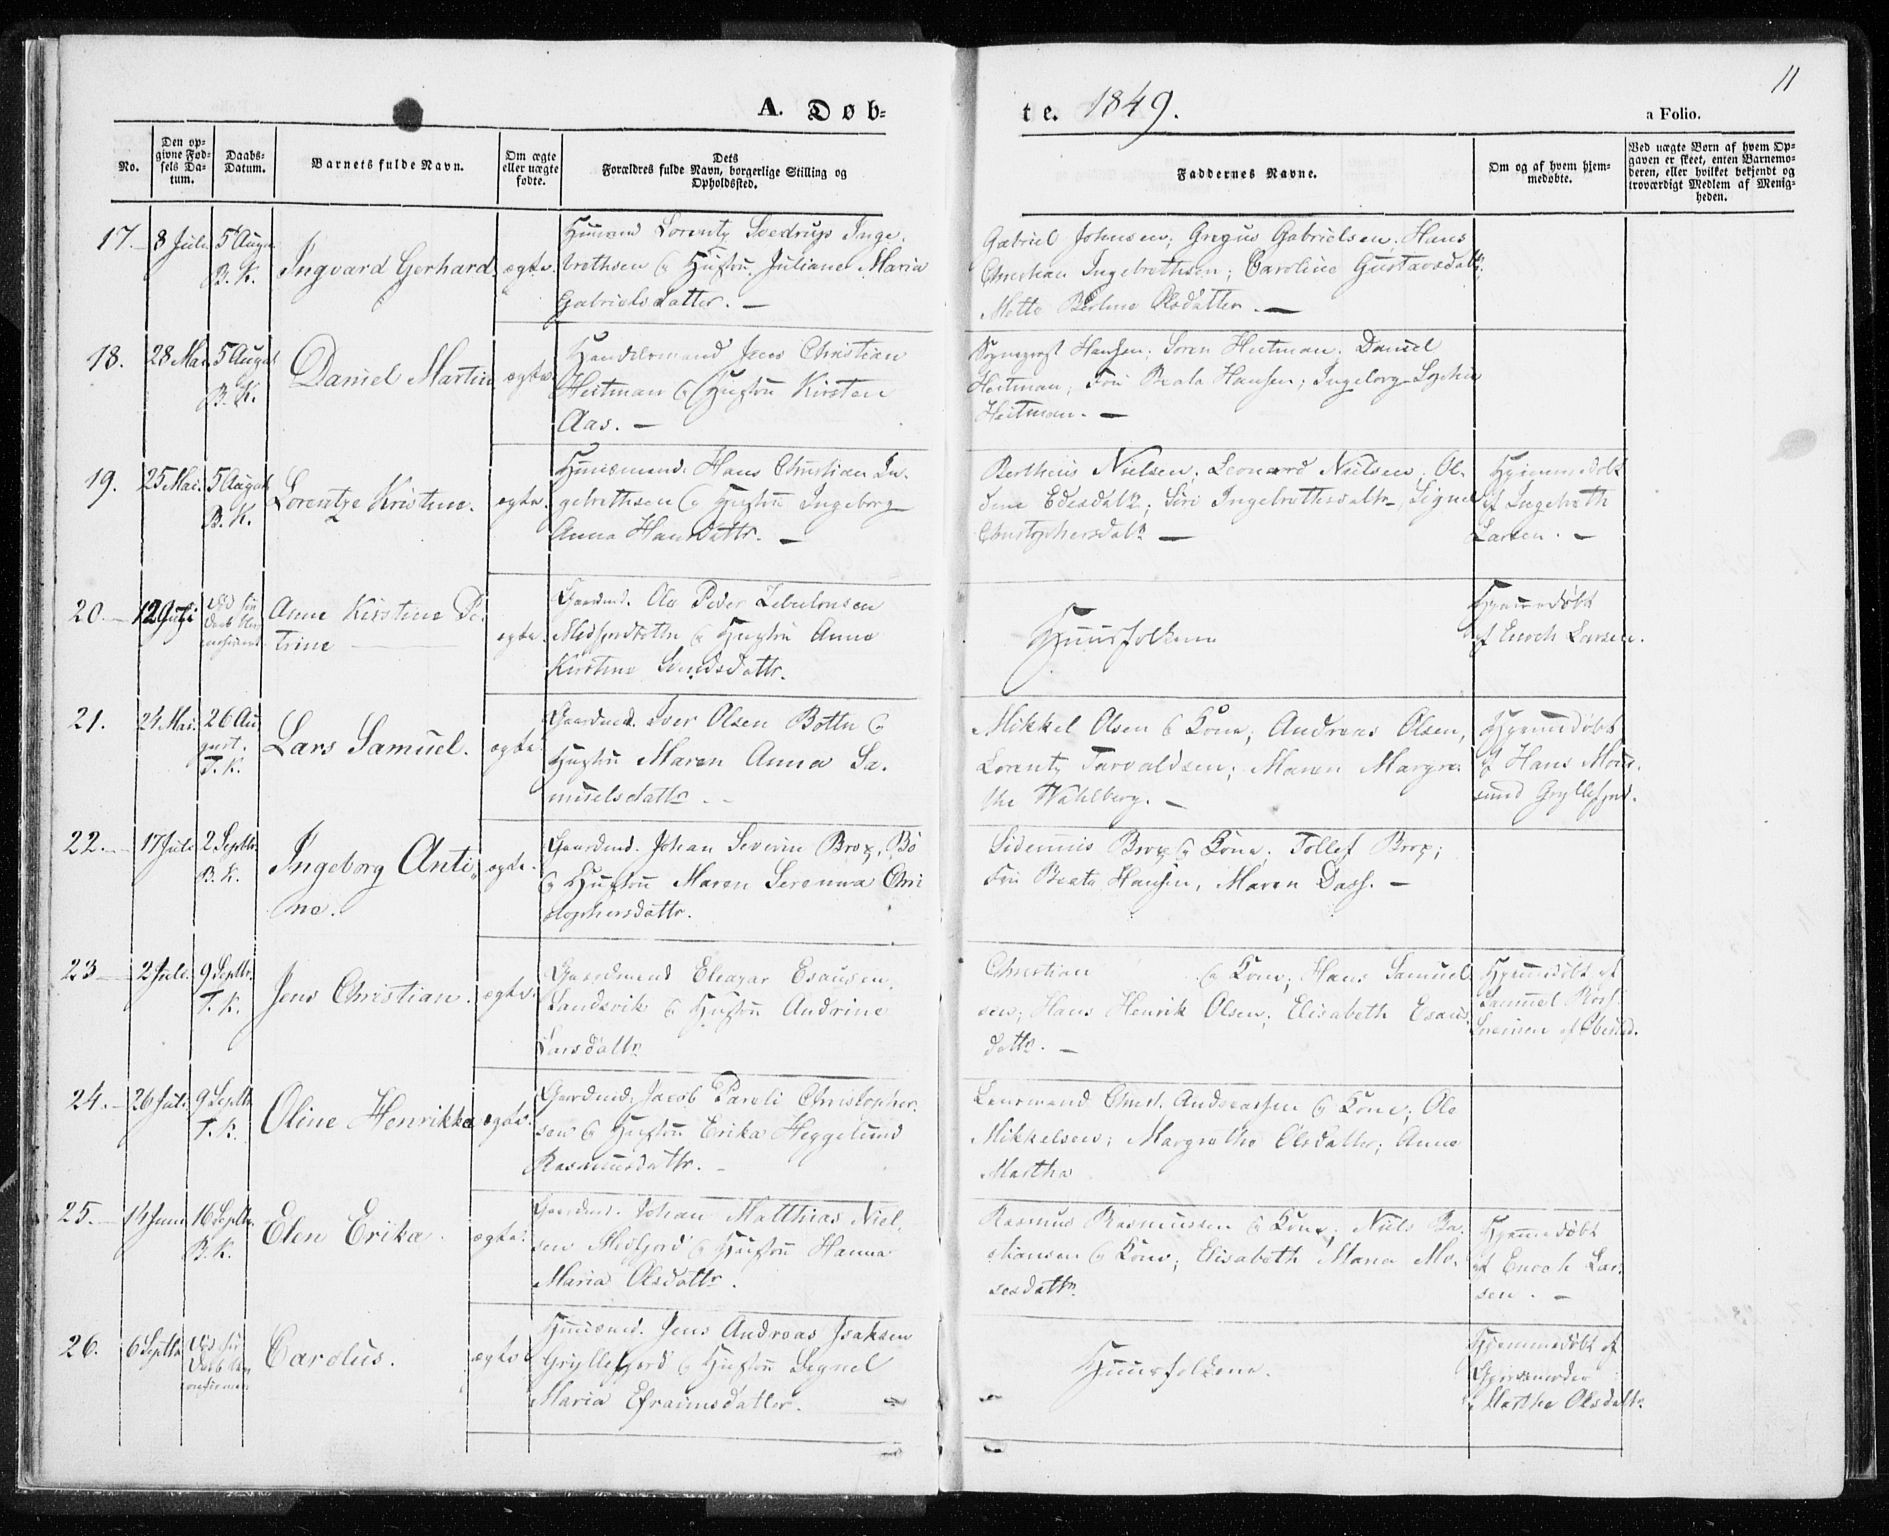 11
A. Døb-
te. 1849.
a Folio.
No.
Den op-
givne Fød-
sels Da-
tum.
Daabs-
Datum.
Barnets fulde Navn.
Om ægte
eller uægte
fødte.
Dets
Forældres fulde Navn, borgerlige Stilling og
Opholdssted.
Faddernes Navne.
Om og af hvem hjem-
medøbte.
Ved uægte Børn af hvem Op-
gaven er skeet, enten Barnemo-
deren, eller hvilket bekjendt og
troværdigt Medlem af Menig-
heden.
17. 8 Juli 5 August
B. K.
Ingvard Gerhard
ægte.
Huusmand Lorentz Svedrup Inge-
brethsen & Hustru Juliane Maria
Gabrielsdatter. —
Gabriel Johnsen; Gregus Gabrielsen; Hans
Christian Ingebrethsen; Caroline Gustavsdatr;
Mette Berline Olsdatter. —
18. 28 Mai 5 August
B. K.
Daniel Martin
ægte.
Handelsmand Jens Christian
Heitman & Hustru Kirsten
Aas. —
Sogneprest Hansen; Søren Heitman; Daniel
Heitman; Fru Beata Hansen; Ingeborg Sophie
Heitman. —
19. 25 Mai. 5 August
B. K.
Lorentze Kristine.
ægte.
Huusmand. Hans Christian In-
gebrethsen & Hustru Ingeborg
Anna Hansdattr. —
Bertheus Nielsen; Leonard Nielsen; Ol-
Siri Ingebrethsdattr, Signel
Christophersdatr —
Hjemmedøbt
af Ingebreth
Larsen. —
20. 12 Juli
Død før
Daab
Anne Kirstine Pe-
trine
ægte.
Gaardmd. Ole Peder Zebulonsen
Medfjordbotten & Hustru Anne
Kirstine
Huusfolkene
Hjemmedøbt
af Enoch Larsen.
21. 24 Mai. 26 Au-
gust.
T. K.
Lars Samuel.
ægte.
Gaardmd. Iver Olsen Botten &
Hustru Maren Anna Sa-
muelsdattr. —
Mikkel Olsen & Kone; Andreas Olsen,
Lorentz Torvaldsen; Maren Margre-
the Wahlberg. —
Hjemmedøbt
af Hans Mor-
tund Gryllefjord.
22. 17 Juli 2 Septbr.
B. K.
Ingeborg Anti-
ne.
ægte.
Gaardmd. Johan Severin Brox, Bø
& Hustru Maren Serenna Chri-
stophersdattr.
Sidenius Brox & Kone; Tollef Brox;
Fru Beata Hansen, Maren Dass. —
23 2 Juli. 9 Septbr.
T. K.
Jens Christian.
ægte.
Gaardmand Eleazar Esausen,
Sandsvik & Hustru Andrine
Larsdattr
Christian & Kone; Hans Samuel-
sen; Hans Henrik Olsen; Elisabeth Esaus-
dattr. —
Hjemmedøbt af
Samuel
Sørensen af
24. 26 Juli 9 Septbr
T. K.
Oline Henrikka
ægte.
Gaardmd. Jacob Pareli Christopher-
sen & Hustru Erika Heggelund
Rasmusdattr. —
Lensmand Christ. Andreassen & Kone; Ole
Mikkelsen; Margrethe Olsdatter; Anne
Martha
25. 14 Juni 16 Septbr.
B. K.
Elen Erika.
ægte.
Gaardmd. Johan Matthias Niel-
sen Medfjord & Hustru Hanna
Maria Olsdattr.
Rasmus Rasmussen & Kone; Niels Ba-
stiansen & Kone; Elisabeth Maria Mo-
sesdattr.
Hjemmedøbt
af Enoch Lar-
sen. —
26. 6 Septbr
Død før
Daab
Carolus.
ægte.
Huusmd. Jens Andreas Isaksen
Gryllefjord & Hustru Segnel
Maria Efraimsdatter.
Huusfolkene.
Hjemmedøbt af
Gjordemoder
Marthe Olsdatr.